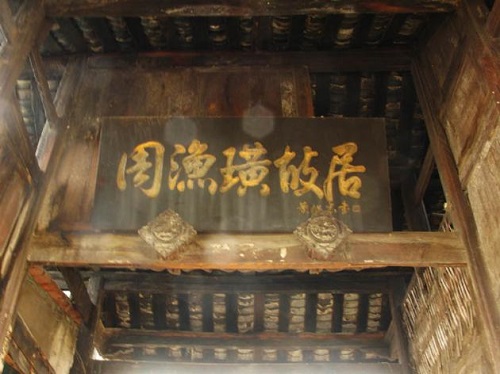 周渔璜故居